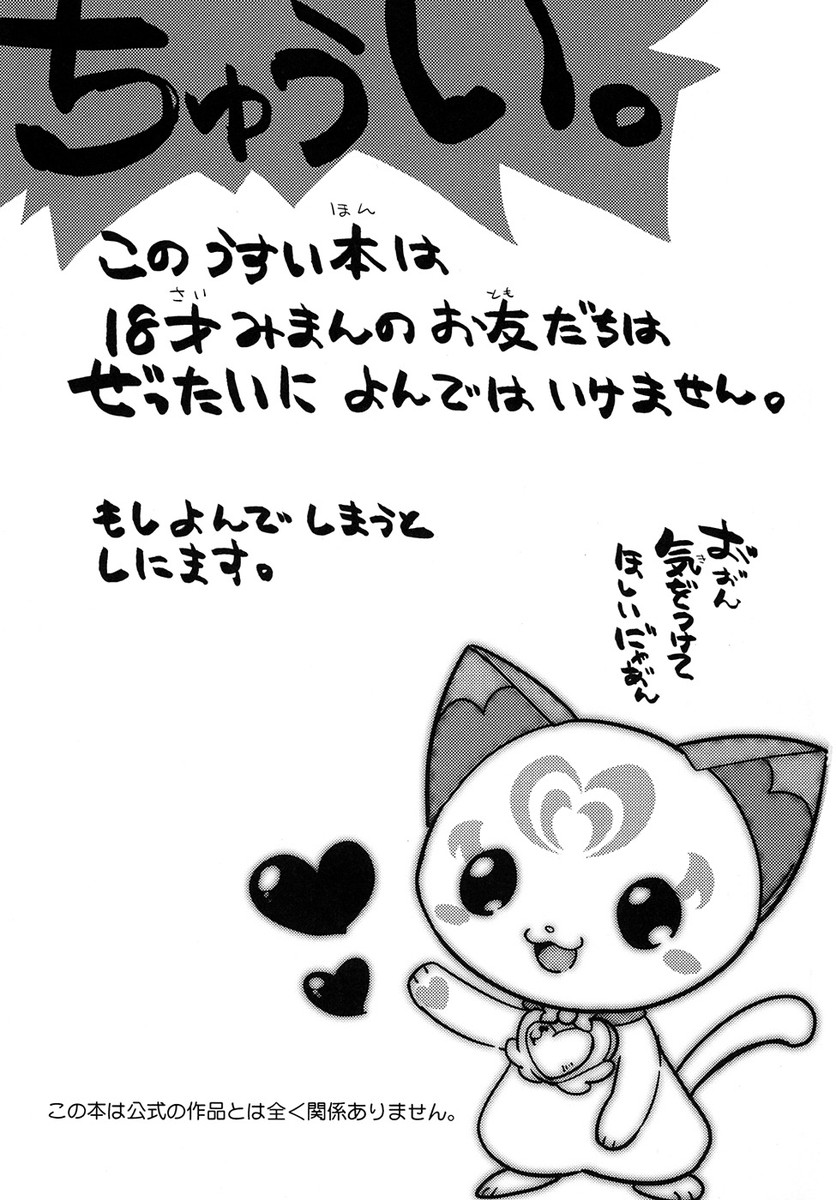 ちゅうい。
このうすい本は
ほん
18才みまんのお友だちは
さい
とも
ぜったいに よんではいけません。
もしよんでしまうと
しにます。
気をつけて
き
ほしいにゃおん
この本は公式の作品とは全く関係ありません。